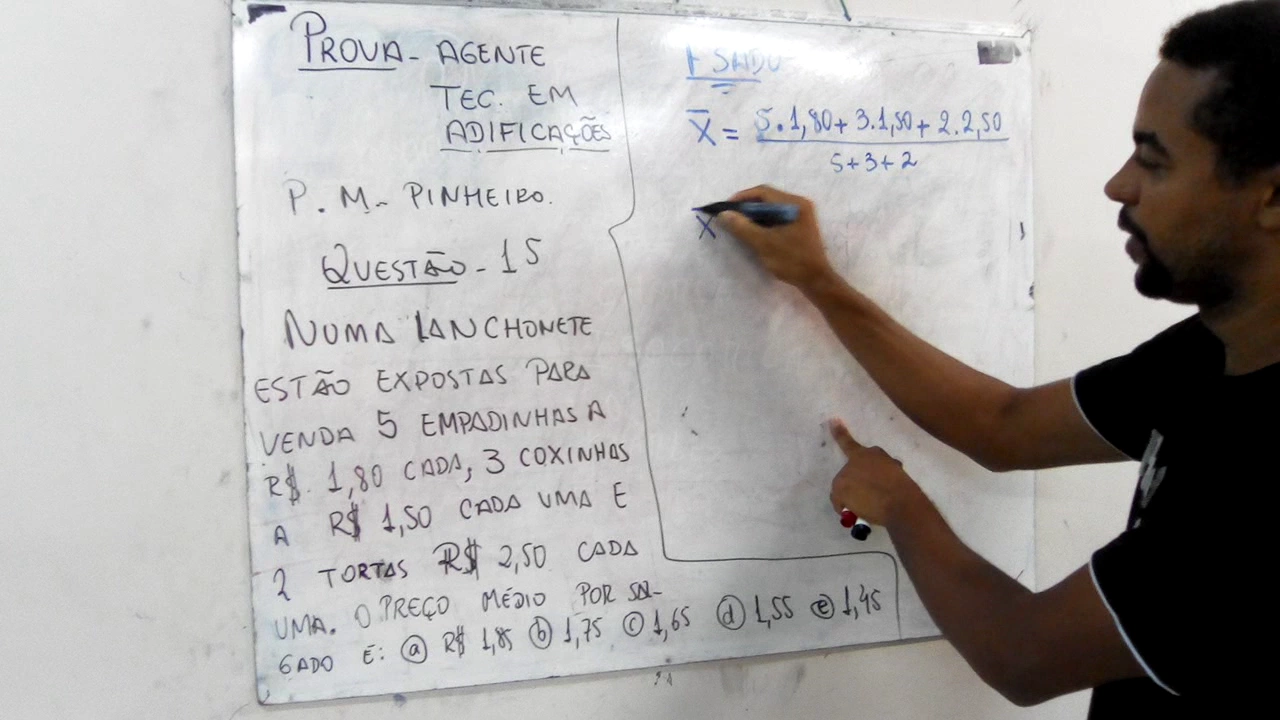 PROVA - AGENTE
TEC. EM
ADIFICAÇÕES
P. M - PINHEIRO.
QUESTÃO - 15
NUMA LANCHONETE
ESTÃO EXPOSTAS PARA
VENDA 5 EMPADINHAS A
R$. 1,80 CADA, 3 COXINHAS
A R$ 1,50 CADA UMA E
2 TORTAS R$ 2,50 CADA
UMA. O PREÇO MÉDIO POR SAL-
GADO É: (a) R$ 1,85 (b) 1,75 (c) 1,65 (d) 1,55 (e) 1,45
X̄ = 5.1,80 + 3.1,50 + 2.2,50
5+3+2
X